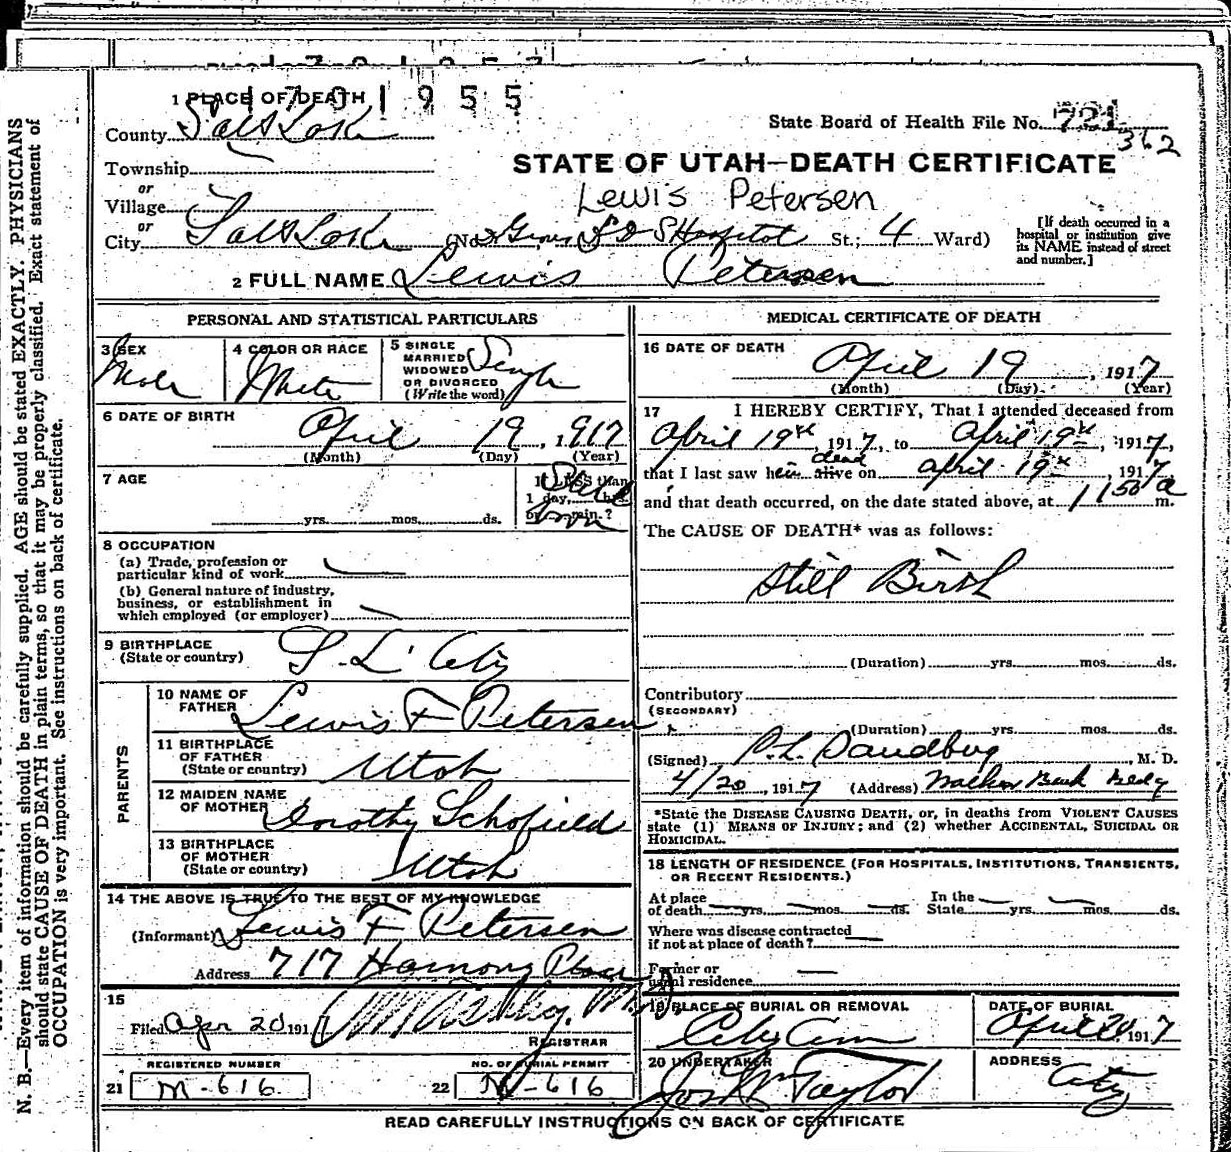 1 PLACE OF DEATH
1701955
County Salt Lake
State Board of Health File No. 721
362
Township
STATE OF UTAH—DEATH CERTIFICATE
or
Village
Lewis Petersen
or
City Salt Lake (No. Groves L D S Hospital St.; 4 Ward)
[If death occurred in a hospital or institution give its NAME instead of street and number.]
2 FULL NAME Lewis Petersen
PERSONAL AND STATISTICAL PARTICULARS
3 SEX
Male
4 COLOR OR RACE
White
5 SINGLE
MARRIED
WIDOWED
OR DIVORCED
(Write the word)
Single
6 DATE OF BIRTH
April 19, 1917
(Month) (Day) (Year)
7 AGE
yrs. mos. ds.
If LESS than
1 day, hrs.
or min.?
Still
Born
8 OCCUPATION
(a) Trade, profession or
particular kind of work
(b) General nature of industry,
business, or establishment in
which employed (or employer)
9 BIRTHPLACE
(State or country)
S. L. City
PARENTS
10 NAME OF
FATHER
Lewis F Petersen
11 BIRTHPLACE
OF FATHER
(State or country)
Utah
12 MAIDEN NAME
OF MOTHER
Dorothy Schofield
13 BIRTHPLACE
OF MOTHER
(State or country)
Utah
14 THE ABOVE IS TRUE TO THE BEST OF MY KNOWLEDGE
(Informant) Lewis F Petersen
Address 717 Harmony Place
15
Filed Apr 20 1917
M.D.
REGISTRAR
REGISTERED NUMBER
21 M-616
NO. OF BURIAL PERMIT
22 M-616
MEDICAL CERTIFICATE OF DEATH
16 DATE OF DEATH
April 19, 1917
(Month) (Day) (Year)
17 I HEREBY CERTIFY, That I attended deceased from
April 19th, 1917, to April 19th, 1917,
dead
that I last saw him alive on April 19th 1917
and that death occurred, on the date stated above, at 1150 a m.
The CAUSE OF DEATH* was as follows:
Still Birth
(Duration) yrs. mos. ds.
Contributory
(SECONDARY)
(Duration) yrs. mos. ds.
(Signed) , M. D.
4/20, 1917 (Address) Walker Bank Bldg
*State the DISEASE CAUSING DEATH, or, in deaths from VIOLENT CAUSES
state (1) MEANS OF INJURY; and (2) whether ACCIDENTAL, SUICIDAL OR
HOMICIDAL.
18 LENGTH OF RESIDENCE (FOR HOSPITALS, INSTITUTIONS, TRANSIENTS,
OR RECENT RESIDENTS.)
At place
of death yrs. mos. ds.
In the
State yrs. mos. ds.
Where was disease contracted
if not at place of death?
Former or
usual residence
19 PLACE OF BURIAL OR REMOVAL
City Cem
DATE OF BURIAL
April 20 1917
20 UNDERTAKER
Jos Wm Taylor
ADDRESS
City
READ CAREFULLY INSTRUCTIONS ON BACK OF CERTIFICATE
N. B.—Every item of information should be carefully supplied. AGE should be stated EXACTLY. PHYSICIANS
should state CAUSE OF DEATH in plain terms, so that it may be properly classified. Exact statement of
OCCUPATION is very important. See instructions on back of certificate.